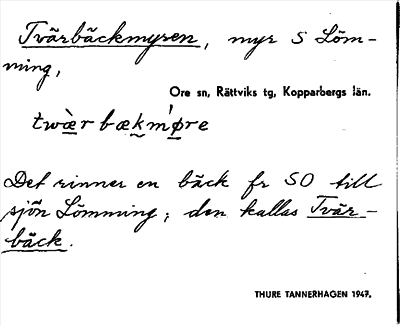 Tvärbäckmyren, myr S Löm-
ning,
Ore sn, Rättviks tg, Kopparbergs län.
twæ̀r bækm'øre
Det rinner en bäck fr SO till
sjön Lömning; den kallas Tvär-
bäck.
THURE TANNERHAGEN 1947.